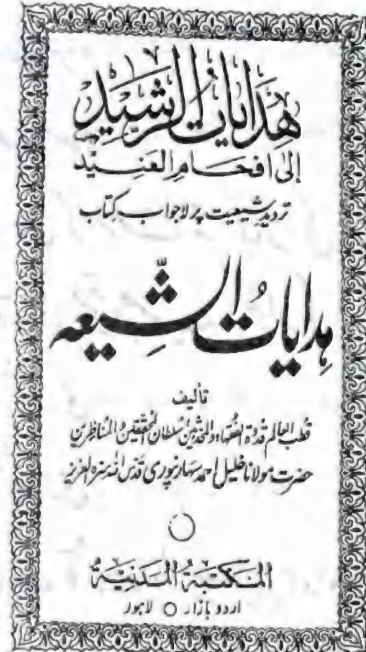 ھدایات الرشید
إلی افحام العنید
تردید شیعیت پر لاجواب کتاب
ہدایات الشیعہ
تالیف
قطب العالم قدوۃ الفقہاء والمحدثین سلطان المحققین والمناظرین
حضرت مولانا خلیل احمد سہارنپوری قدس اللہ سرہ العزیز
المکتبۃ المدنیۃ
اردو بازار ○ لاہور